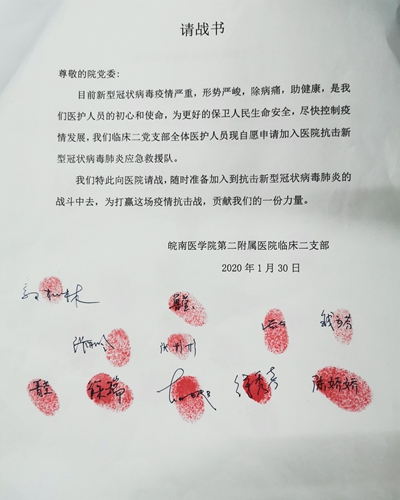 请战书
尊敬的院党委：
目前新型冠状病毒疫情严重，形势严峻，除病痛，助健康，是我
们医护人员的初心和使命，为更好的保卫人民生命安全，尽快控制疫
情发展，我们临床二党支部全体医护人员现自愿申请加入医院抗击新
型冠状病毒肺炎应急救援队。
我们特此向医院请战，随时准备加入到抗击新型冠状病毒肺炎的
战斗中去，为打赢这场疫情抗击战，贡献我们的一份力量。
皖南医学院第二附属医院临床二支部
2020 年 1 月 30 日
陈娇娇